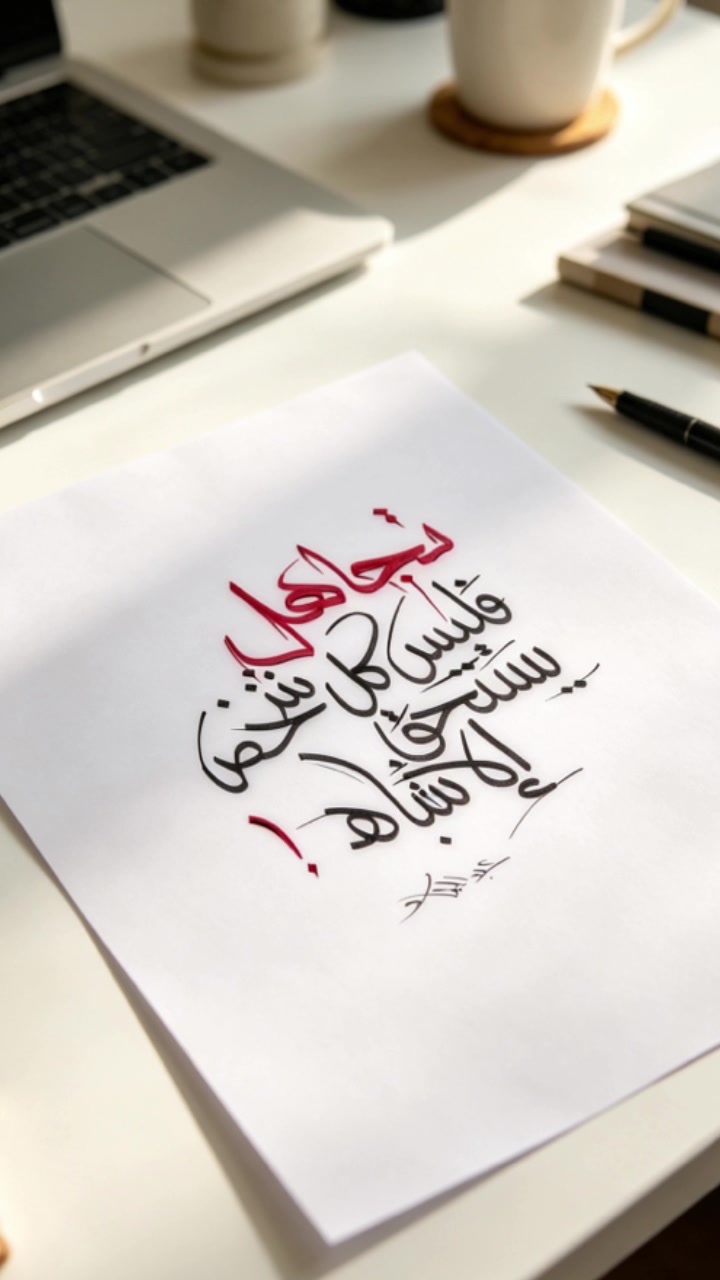 تجاهل
فليس كل شخص
يستحق
الإنتباه !